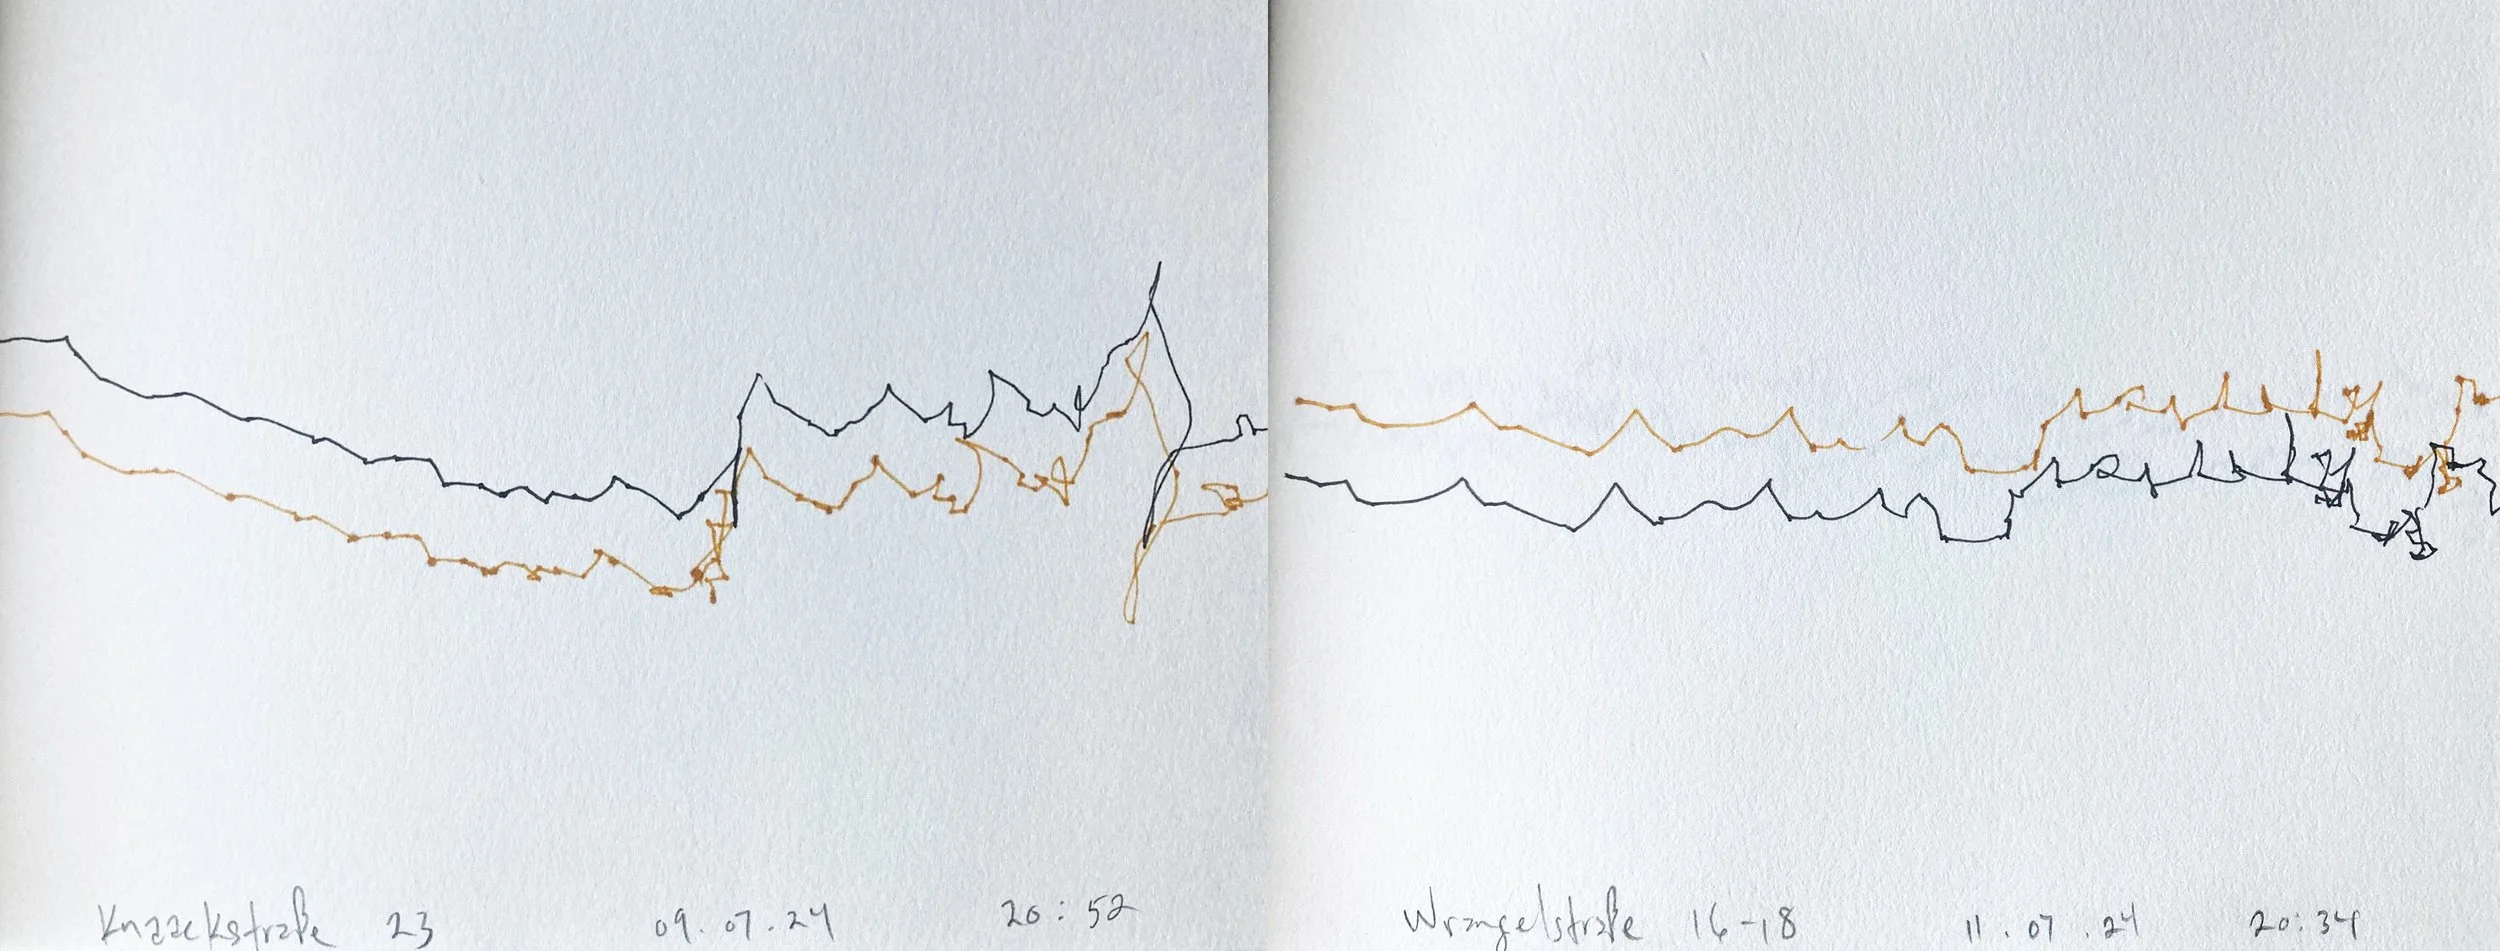 Knaackstraße 23 09.07.24 20:52
Wrangelstraße 16-18 11.07.24 20:34